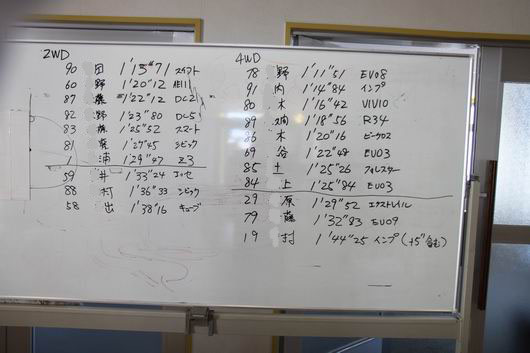 2WD
90 田 1'15"71 スイフト
60 野 1'20"12 AE111
87 藤 1'22"12 DC2
82 野 1'23"80 DC5
83 森 1'25"52 スマート
81 1'27"45 シビック
1 浦 1'29"47 Z3
59 井 1'33"24
88 村 1'36"33 シビック
58 出 1'38"16 キューブ
4WD
78 野 1'11"51 EVO8
91 内 1'14"84 インプ
80 木 1'16"42 VIVIO
89 1'18"56 R34
86 木 1'20"16 ビークロス
69 谷 1'22"48 EVO3
85 土 1'25"26 フォレスター
84 上 1'25"84 EVO3
29 原 1'29"52 エクストレイル
79 藤 1'32"83 EVO9
19 村 1'44"25 インプ(+5"含む)